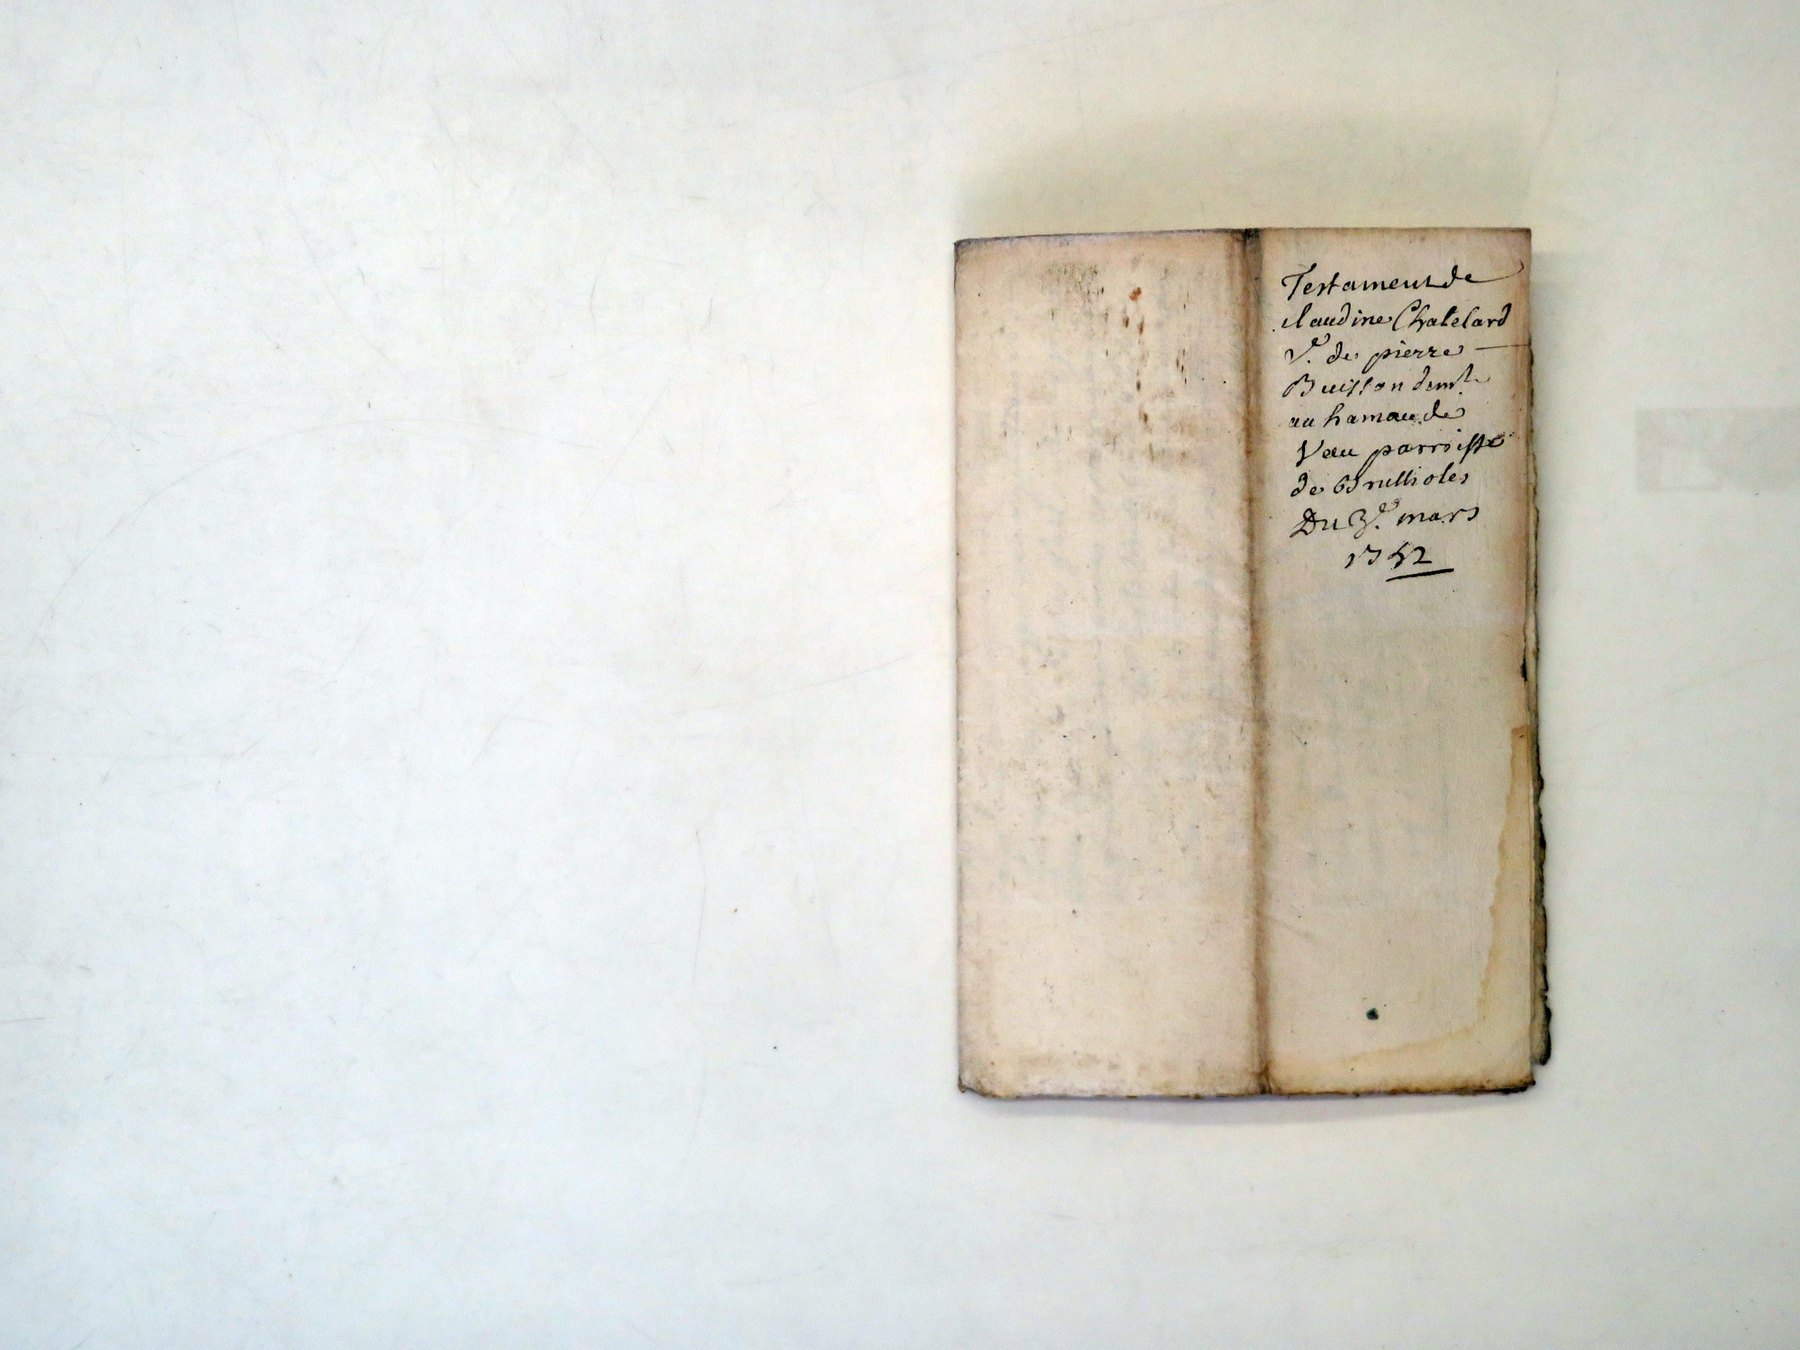 Testament de
claudine Chatelard
Ve. de pierre
Buisson demt.
au hamau de
Vau parroisse
de Brullioles
Du 3e. mars
1752